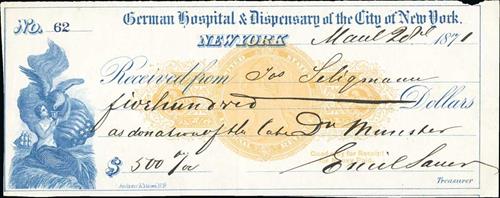 German Hospital & Dispensary of the City of New York.
No. 62
NEW YORK
187
Received from Jos Seligmann
five hundred Dollars
as donation of the late Dr Munster
$ 500
Emil Sauer
Treasurer